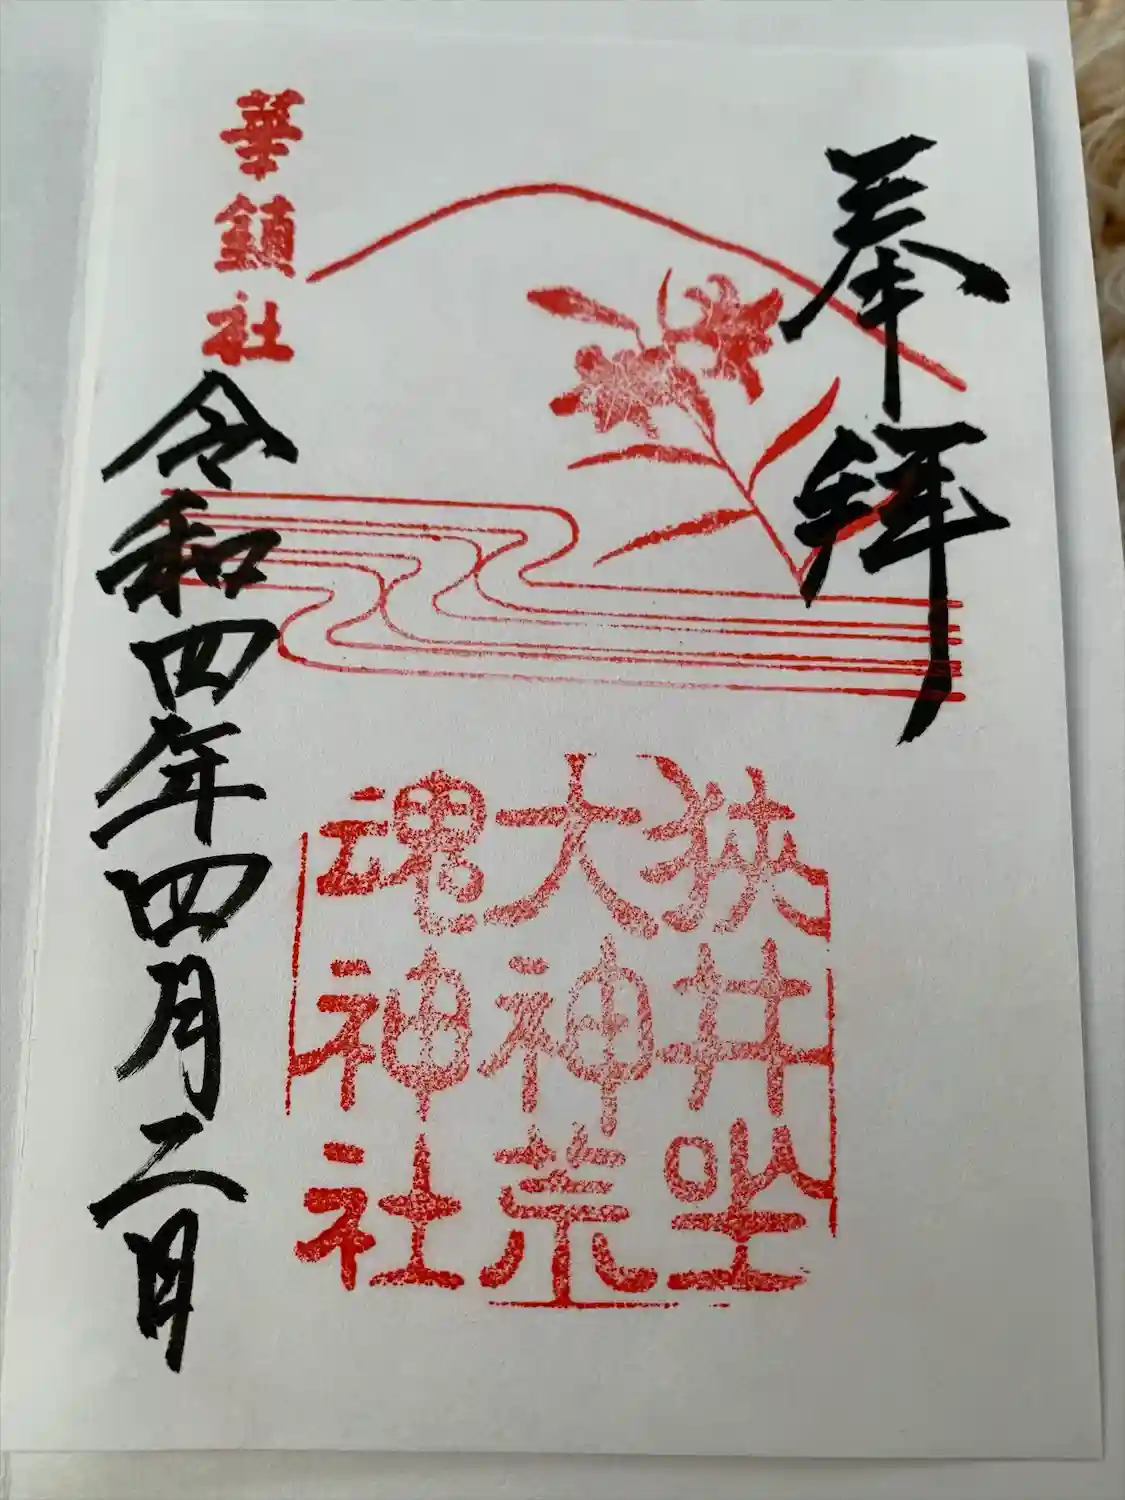 奉拝
狭井坐
大神荒
魂神社
華鎮社
令和四年四月二日